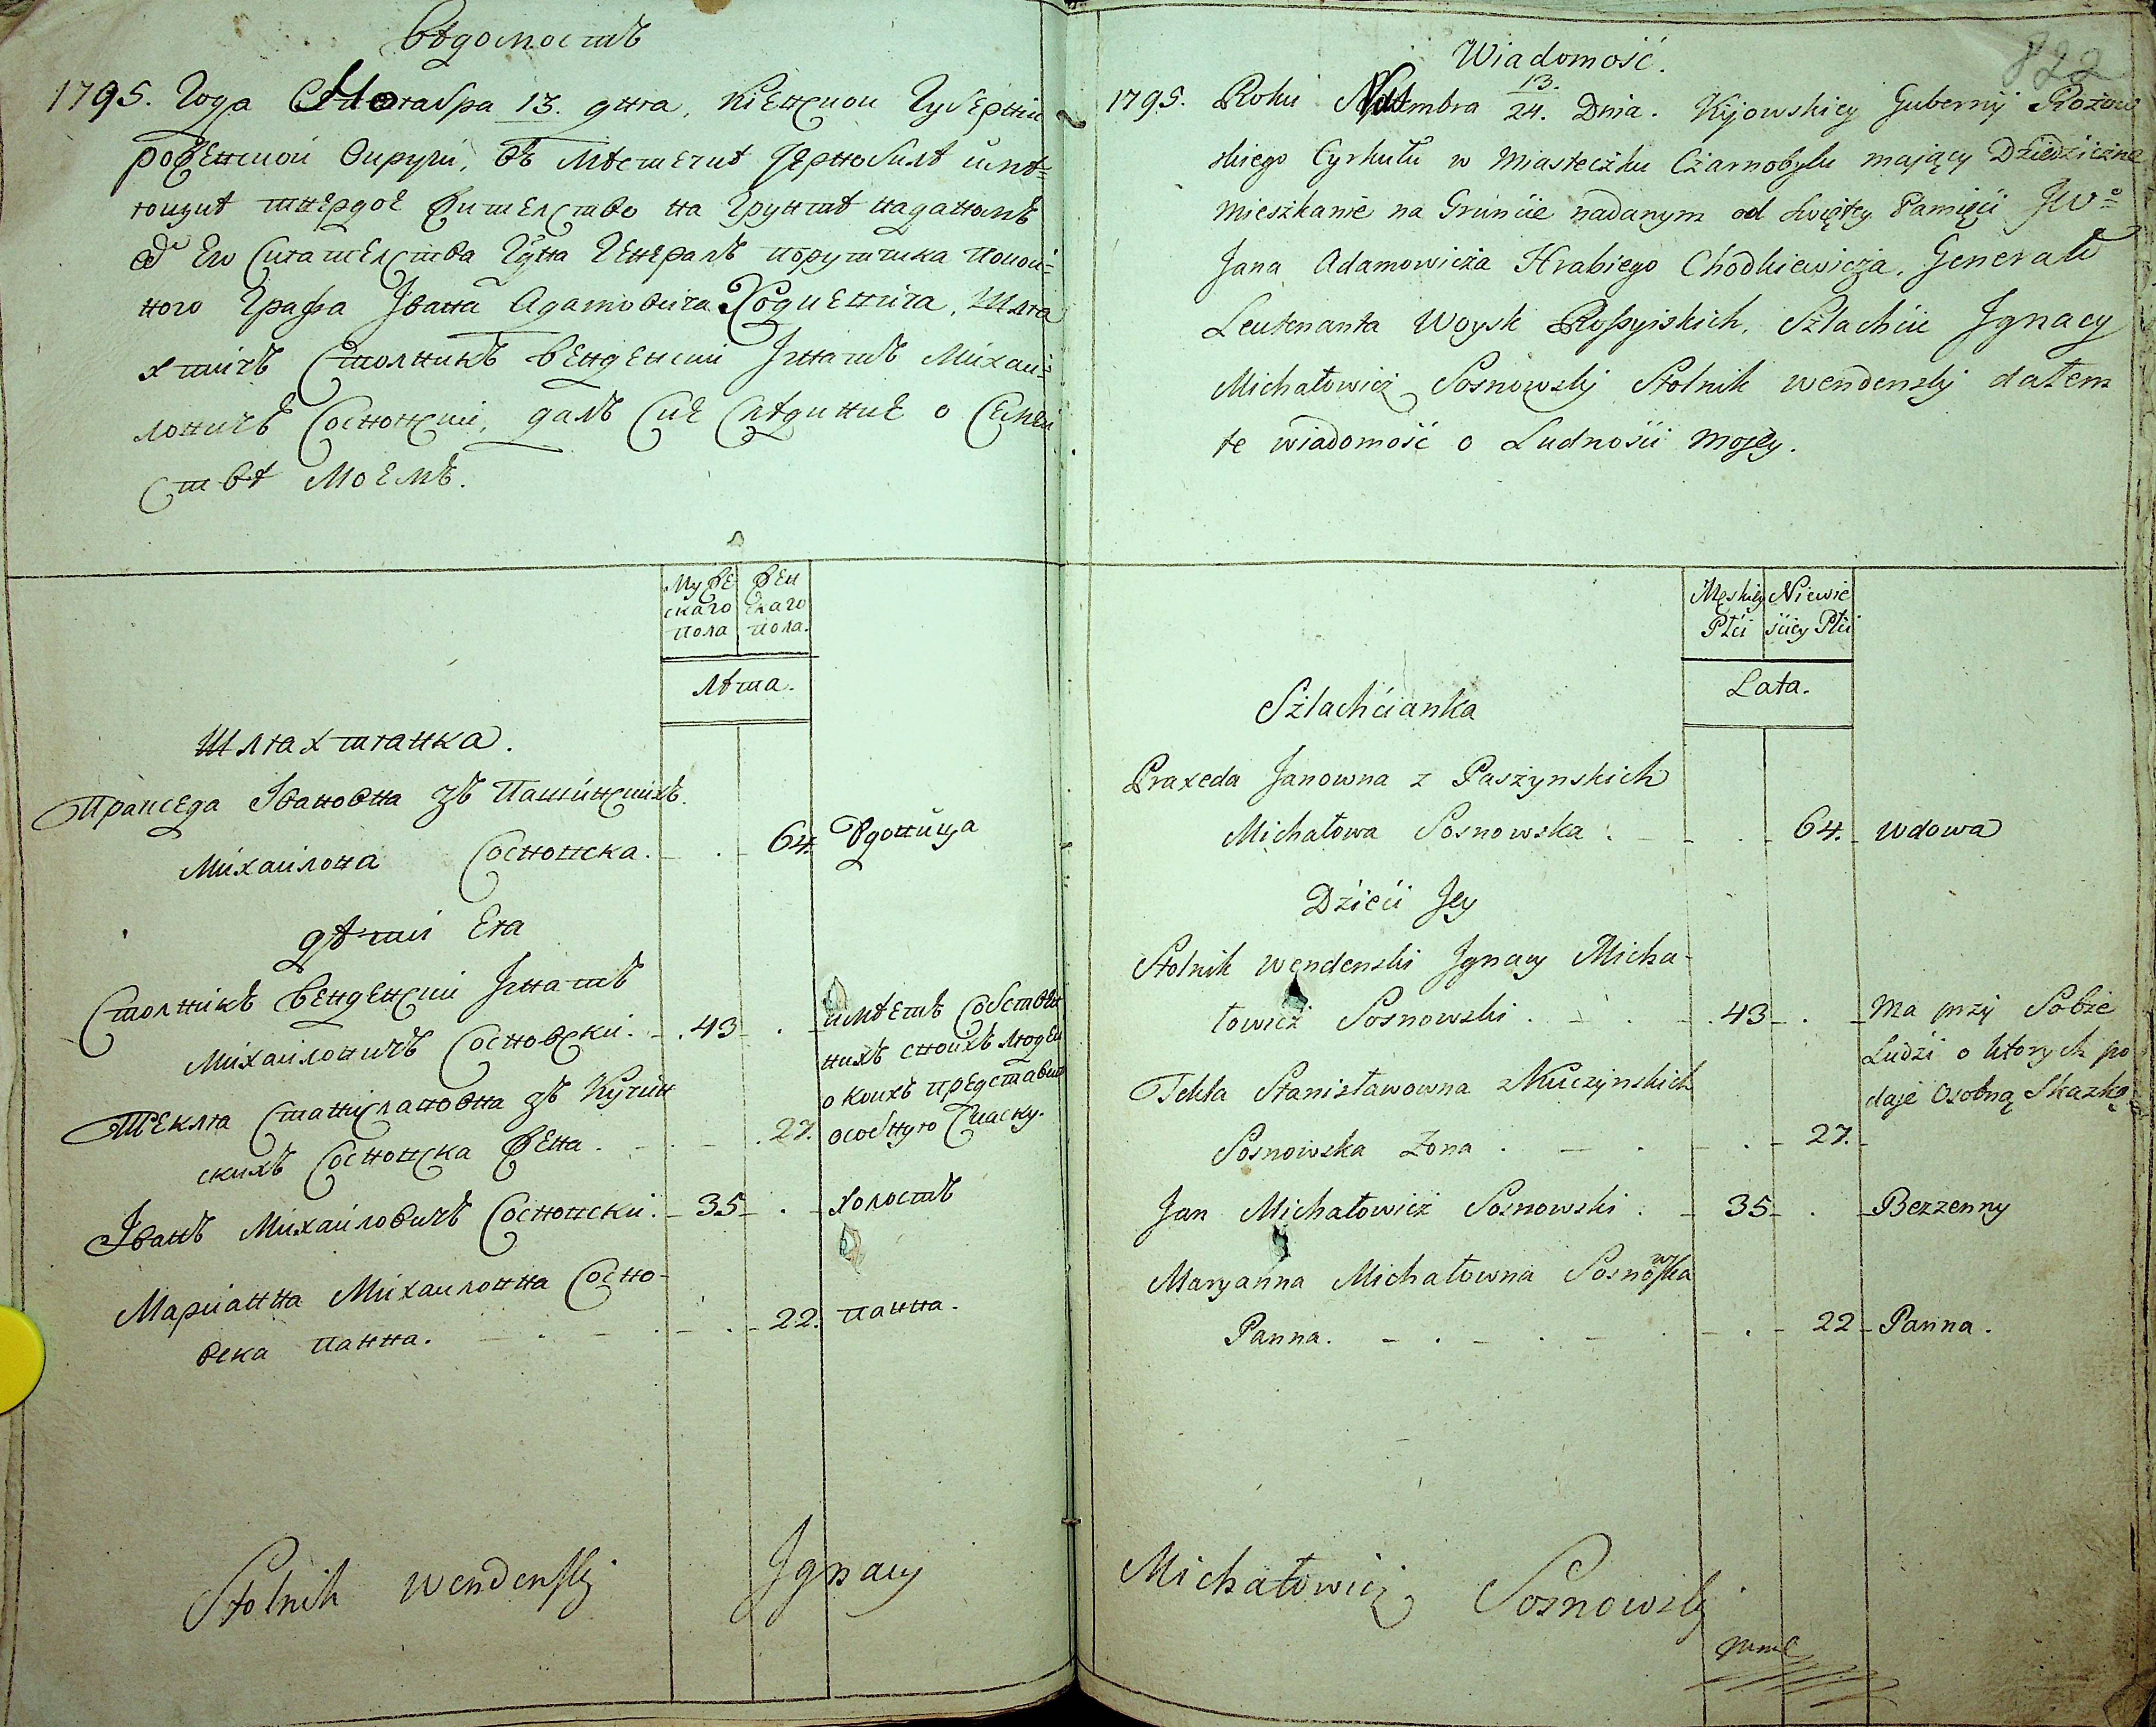 Вѣдомостъ
1795. Года Ноября 13. дня, Кіевской Губерніи
ровенской Округи, въ мѣстечкѣ Чернобилѣ имѣ=
ющій твердое жителство на Грунтѣ наданомъ
отъ Его Сіятелства Пана Генералъ порутчика покой=
ного Графа Івана Адамовича Ходкевича, Шля
хтичъ Столникъ Венденскій Ігнатъ Михаи=
ловичъ Сосновскій, далъ Сіе Свѣдиние о Семей
ствѣ Моемъ.
Муже
скаго
пола
Жен
скаго
пола.
Лѣта.
Шляхтянка.
Праиседа Івановна зъ Пашинскихъ.
Михаилова Сосновска. 64. Вдовица
Дѣти Ея
Столникъ Венденскій Ігнатъ
Михаиловичъ Сосновски. 43 имѣетъ Собствен
нихъ своихъ людей
о коихъ представит
особную Скаску.
Текля Станиславовна зъ Кучин
скихъ Сосновска Жена. 27.
Іванъ Михайловичъ Сосновски. 35 холостъ
Маріанна Михаиловна Сосно-
вска панна. 22. панна.
Stolnik Wendensky Jgnacy
822
Wiadomość.
1795. Roku Nowembra 13. 24. Dnia. Kijowskiey Gubernij Rożow
skiego Cyrkułu w Miasteczku Czarnobylu maiący Dziedziczne
mieszkanie na Gruncie nadanym od świętey Pamięci JWo
Jana Adamowicza Hrabiego Chodkiewicza, Generał
Leutenanta Woysk Rossyiskich, Szlachcic Jgnacy
Michałowicz Sosnowskj Stolnik wendenskj dałem
te wiadomość o Ludności mojey.
Męskiey
Płci
Niewie
ściey Płci
Lata.
Szlachcianka
Praxeda Janowna z Paszynskich
Michałowa Sosnowska. 64. wdowa
Dzieci Jey
Stolnik wendenski Jgnacy Micha-
łowicz Sosnowski. 43 Ma przy Sobie
Ludzi o ktorych po
daje Osobną Skazkę
Tekla Stanisławowna z Kuczynskich
Sosnowska Żona. 27.
Jan Michałowicz Sosnowski. 35 Bezzenny
Maryanna Michałowna Sosnowska
Panna. 22 Panna.
Michałowicz Sosnowskj